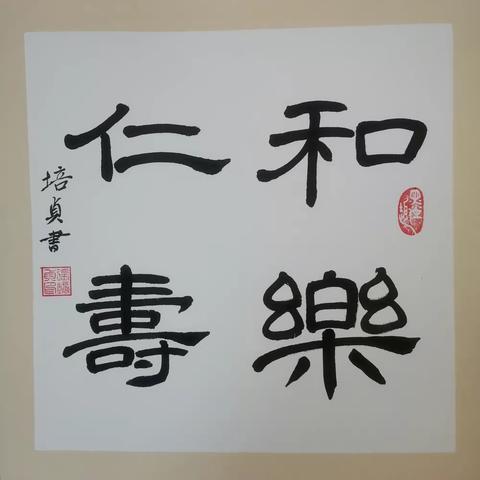 和樂
仁壽
培貞書